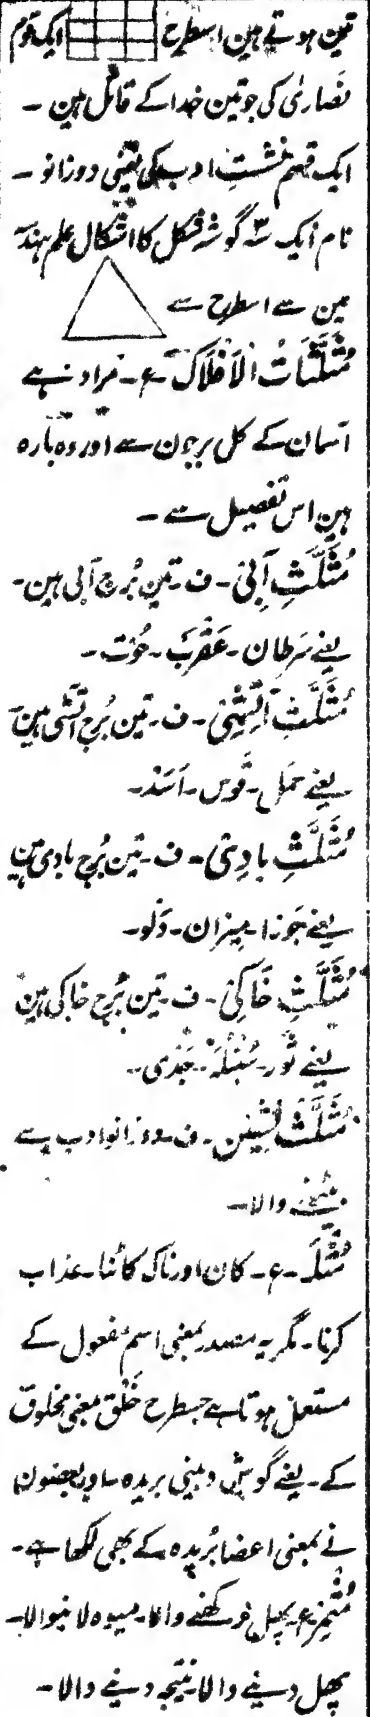 تین ہوتے ہین اسطرح ایک قوم
نصاریٰ کی جو تین خدا کے قائل ہین -
ایک قسم نشستِ ادب کی یعنی دو زانو -
نام ایک سہ گوشہ شکل کا اشکال علم ہندسہ
مین سے اسطرح سے
مُثَلَّثَاتُ الْاَفْلَاک - ع - مراد ہے
آسمان کے کل برجون سے اور وہ بارہ
ہین اس تفصیل سے -
مُثَلَّثِ آبِیْ - ف - تین بُرج آبی ہین -
یعنے سَرطان - عَقْرَب - حُوت -
مُثَلَّثِ آتِشِیْ - ف - تین بُرج آتشی ہین
یعنے حَمَل - قَوس - اَسَد -
مُثَلَّثِ بادِیْ - ف - تین بُرج بادی ہین
یعنے جَوزا - مِیزان - دَلو -
مُثَلَّثِ خَاکِیْ - ف - تین بُرج خاکی ہین
یعنے ثَور - سُنْبُلَہ - جَدْی -
مُثَلَّث نَشِیْن - ف - دو زانو ادب سے
بیٹھنے والا -
مُثْلَہ - ع - کان اور ناک کاٹنا - عذاب
کرنا - مگر یہ مصدر بمعنی اسم مفعول کے
مستعمل ہوتا ہے جسطرح خَلْق بمعنی مخلوق
کے - یعنے گوش و بینی بریدہ - اور بعضون
نے بمعنی اعضا بُریدہ کے بھی لکھا ہے -
مُثْمِر - ع - پھل رکھنے والا - میوہ لانیوالا -
پھل دینے والا - نتیجہ دینے والا -